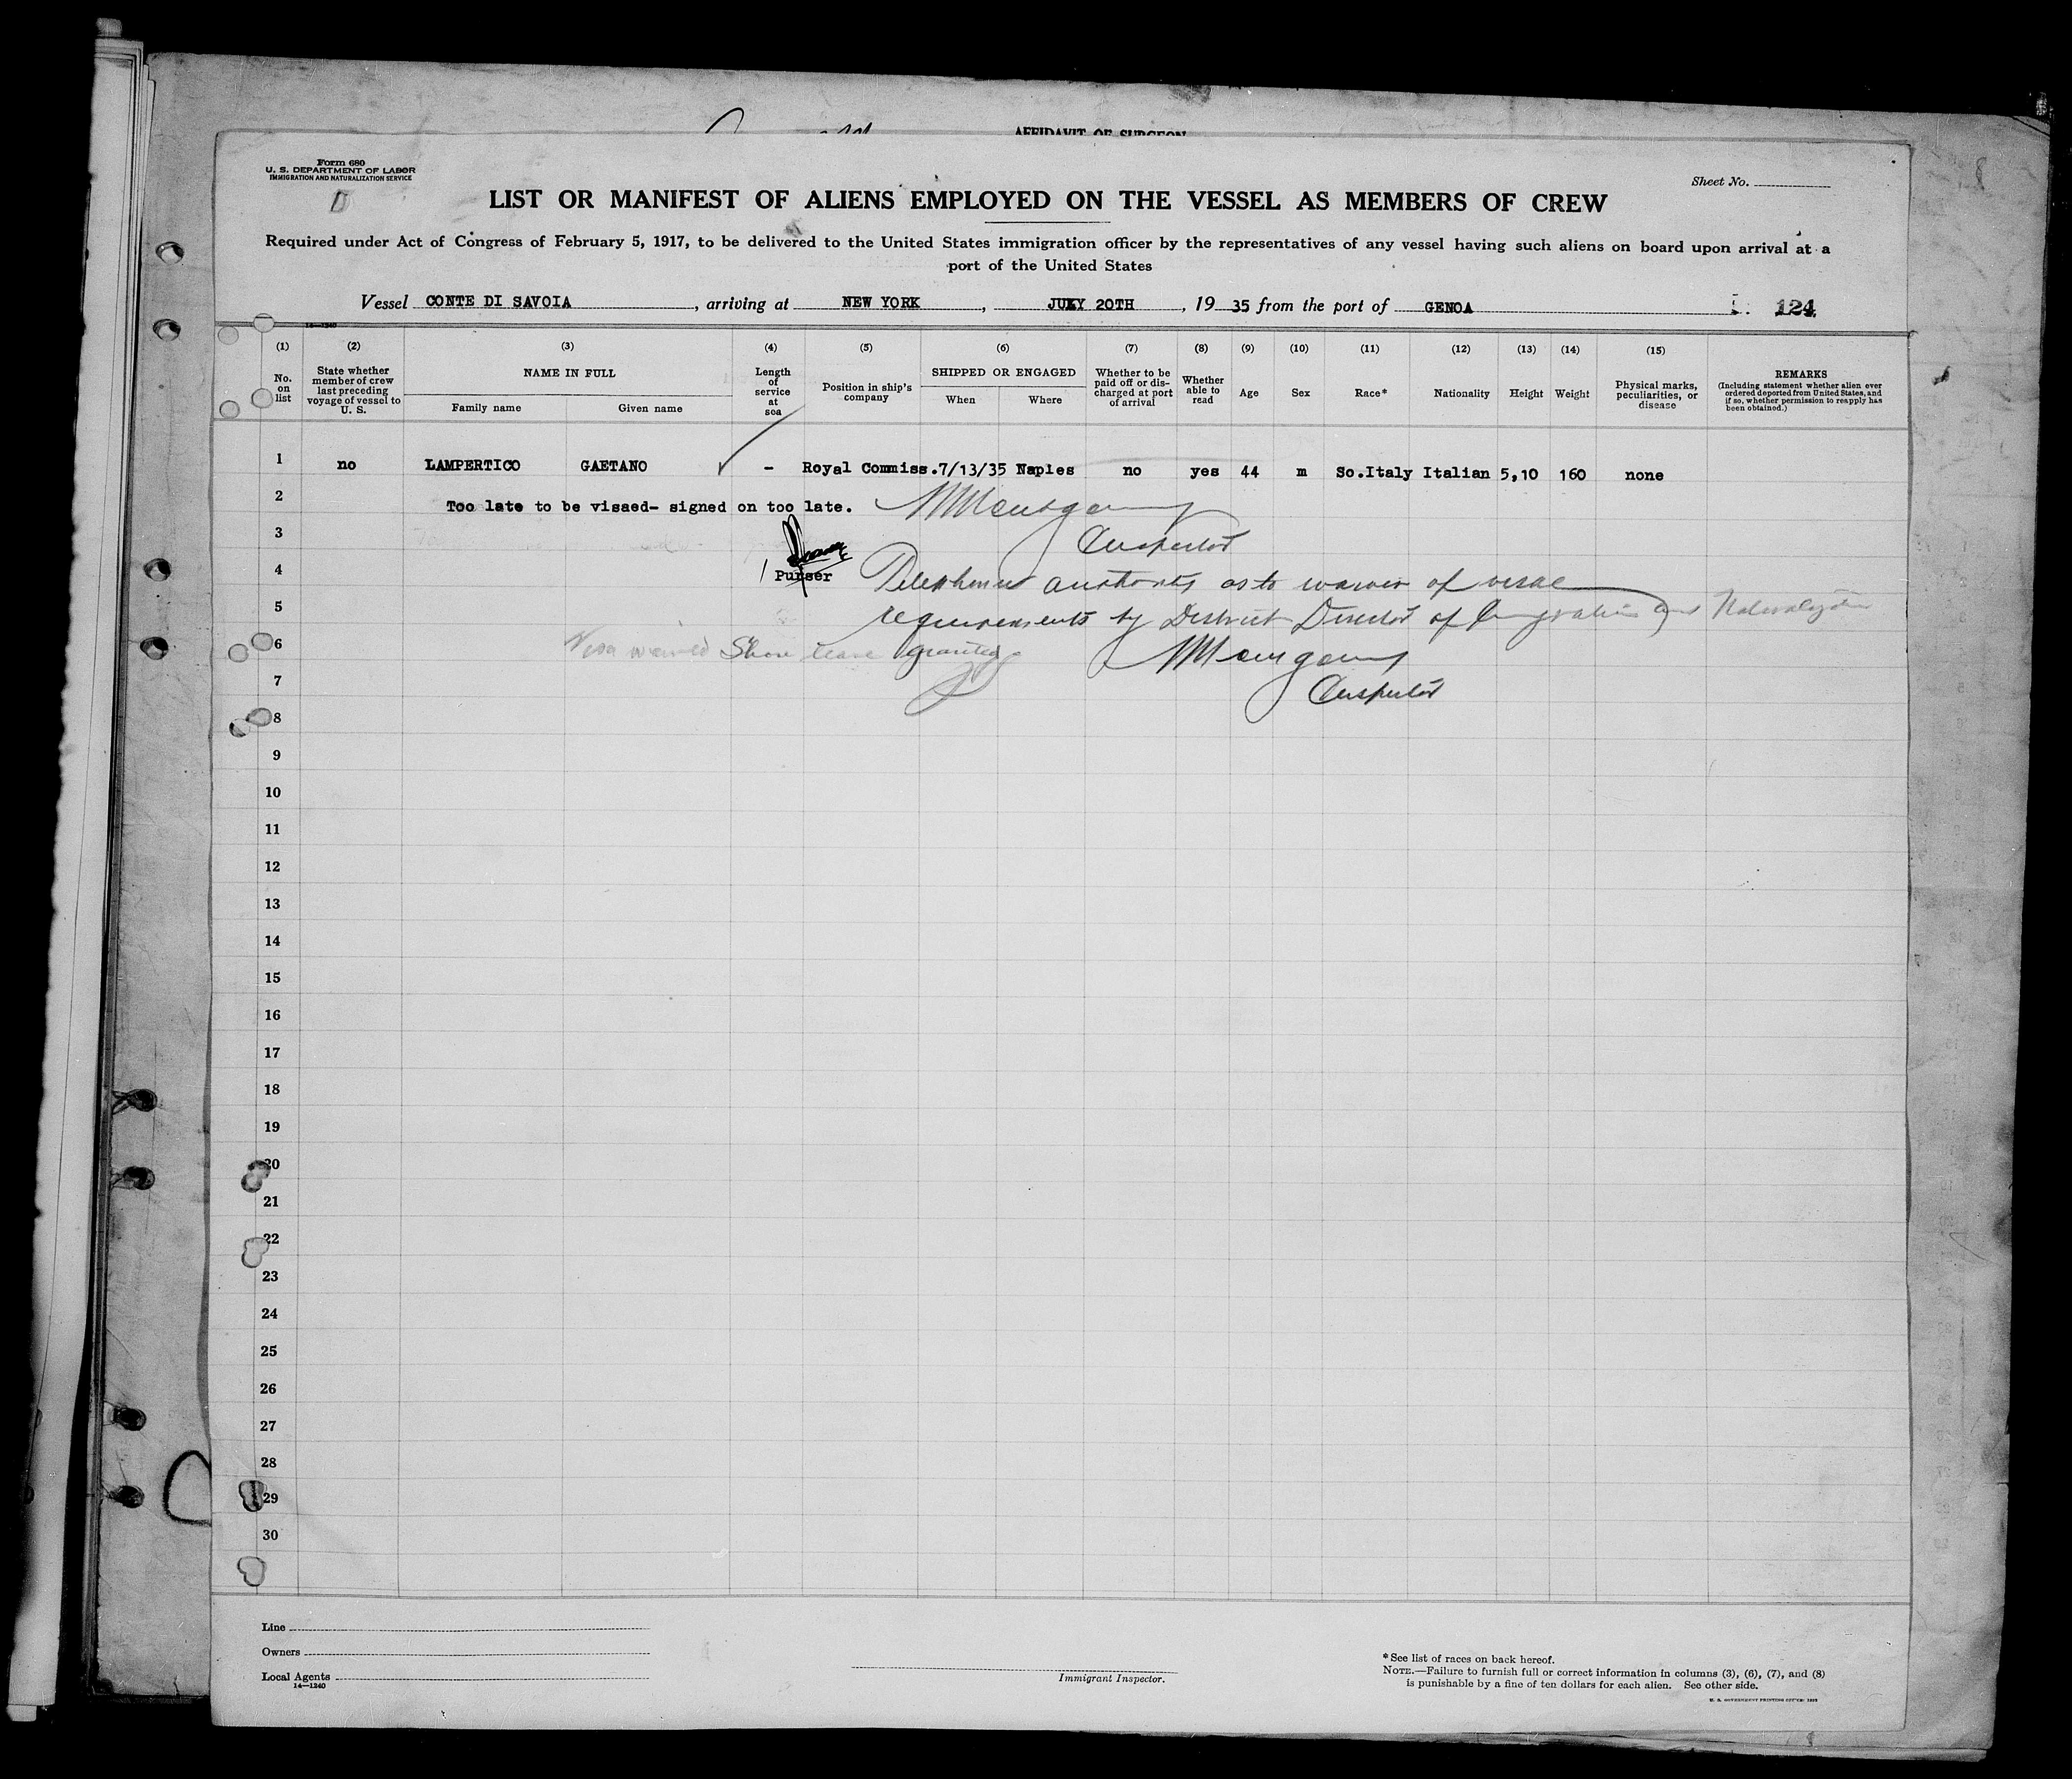 AFFIDAVIT OF SURGEON
Form 680
U. S. DEPARTMENT OF LABOR
IMMIGRATION AND NATURALIZATION SERVICE
D
Sheet No.
LIST OR MANIFEST OF ALIENS EMPLOYED ON THE VESSEL AS MEMBERS OF CREW
Required under Act of Congress of February 5, 1917, to be delivered to the United States immigration officer by the representatives of any vessel having such aliens on board upon arrival at a
port of the United States
Vessel CONTE DI SAVOIA, arriving at NEW YORK, JULY 20TH, 19 35 from the port of GENOA 124
14—1240
(1) (2) (3) (4) (5) (6) (7) (8) (9) (10) (11) (12) (13) (14) (15)
No. on list
State whether member of crew last preceding voyage of vessel to U. S.
NAME IN FULL
Family name
Given name
Length of service at sea
Position in ship's company
SHIPPED OR ENGAGED
When
Where
Whether to be paid off or discharged at port of arrival
Whether able to read
Age
Sex
Race*
Nationality
Height
Weight
Physical marks, peculiarities, or disease
REMARKS
(Including statement whether alien ever ordered deported from United States, and if so, whether permission to reapply has been obtained.)
1 no LAMPERTICO GAETANO - Royal Commiss. 7/13/35 Naples no yes 44 m So.Italy Italian 5,10 160 none
2 Too late to be visaed- signed on too late.
3 Inspector
4 Purser Telephonic authority as to waiver of visae
5 requirements by District Director of Immigration and Naturalization
6 Visa waived Shore leave granted
7 Inspector
8
9
10
11
12
13
14
15
16
17
18
19
20
21
22
23
24
25
26
27
28
29
30
Line
Owners
Local Agents
14—1240
Immigrant Inspector.
*See list of races on back hereof.
NOTE.—Failure to furnish full or correct information in columns (3), (6), (7), and (8)
is punishable by a fine of ten dollars for each alien. See other side.
U. S. GOVERNMENT PRINTING OFFICE: 1933